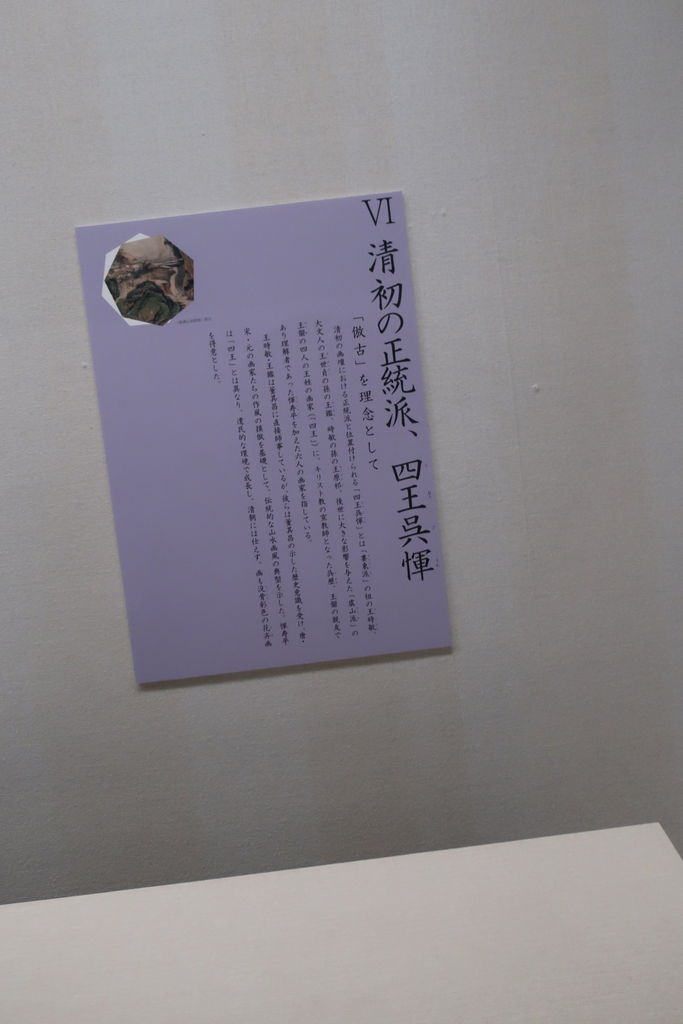 VI 清初の正統派、四王呉惲
「倣古」を理念として
清初の画壇における正統派と位置付けられる「四王呉惲」とは「婁東派」の祖の王時敏、
大文人の王世貞の孫の王鑑、時敏の孫の王原祁、後世に大きな影響を与えた「虞山派」の
王翬の四人の王姓の画家(「四王」)に、キリスト教の宣教師となった呉歴、王翬の親友で
あり理解者であった惲寿平を加えた六人の画家を指している。
王時敏・王鑑は董其昌に直接師事しているが、彼らは董其昌の示した歴史意識を受け、唐・
宋・元の画家たちの作風の模倣を基礎として、伝統的な山水画風の典型を示した。惲寿平
は「四王」とは異なり、遺民的な環境で成長し、清朝には仕えず、画も没骨彩色の花卉画
を得意とした。